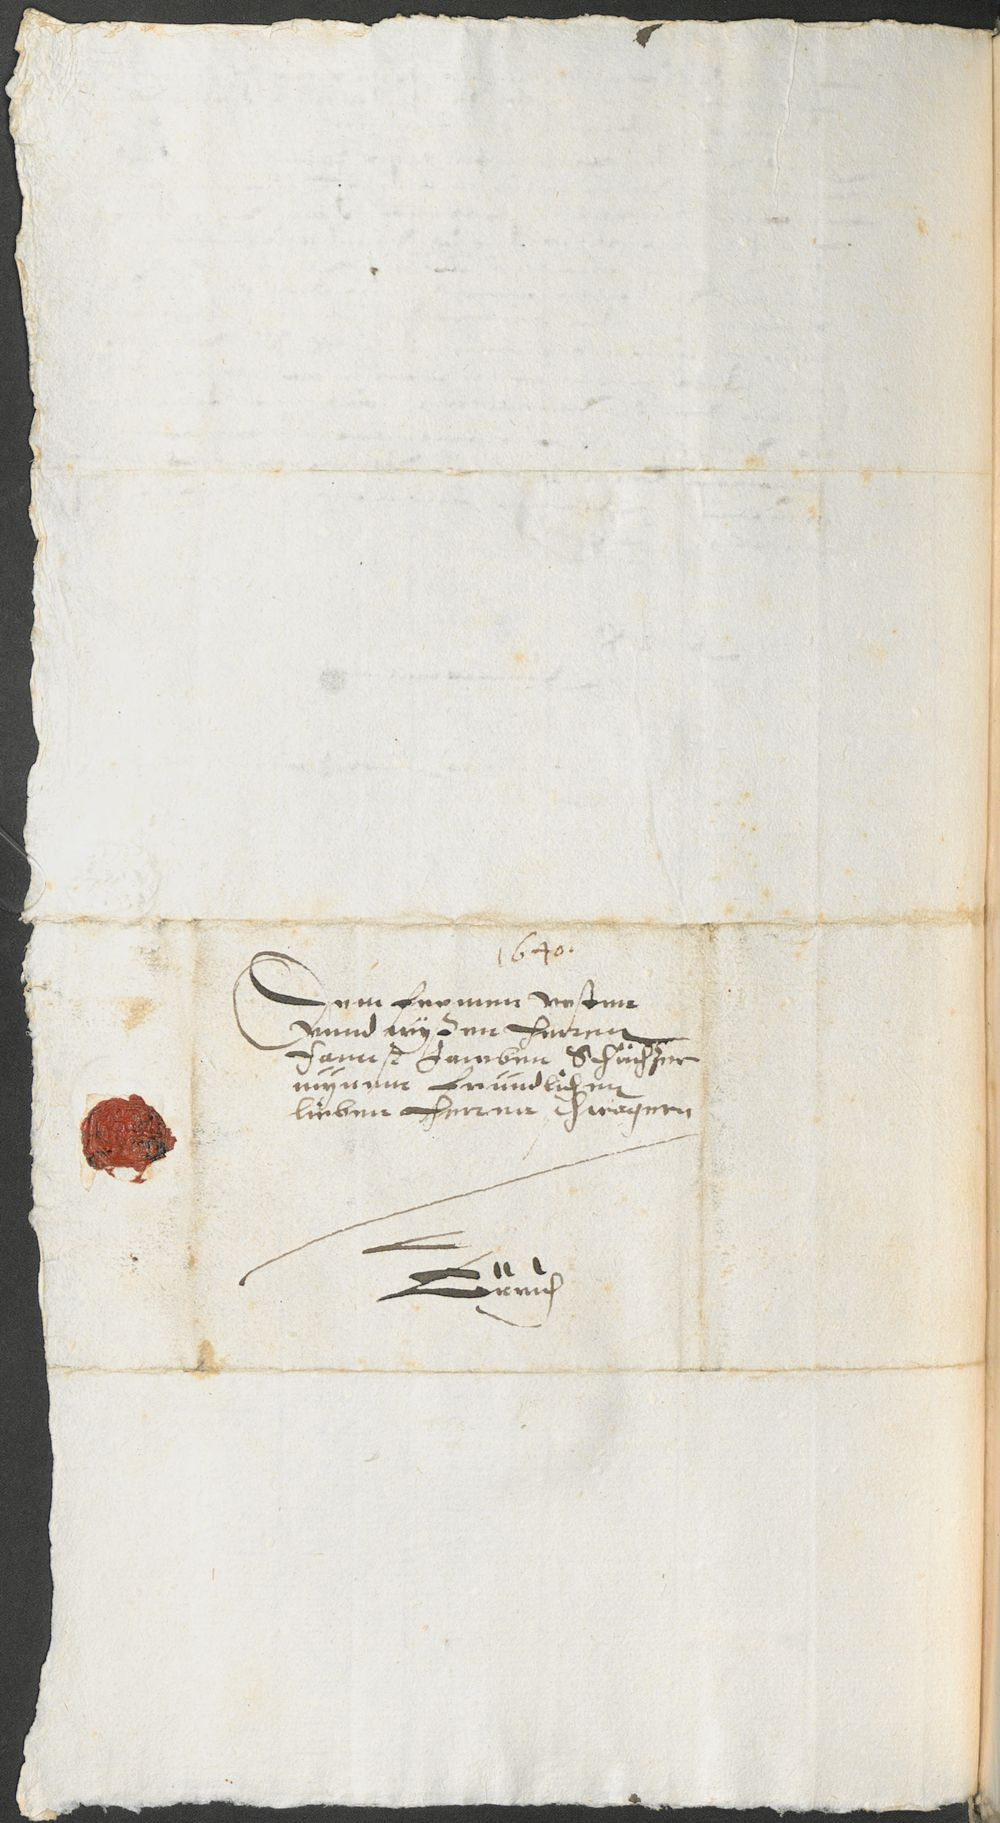 1640.
Dem frommen vesten
vnnd wysen Herren
Hannß Jacoben
mynem fründlichen
lieben Herren Schwagern
Zürich